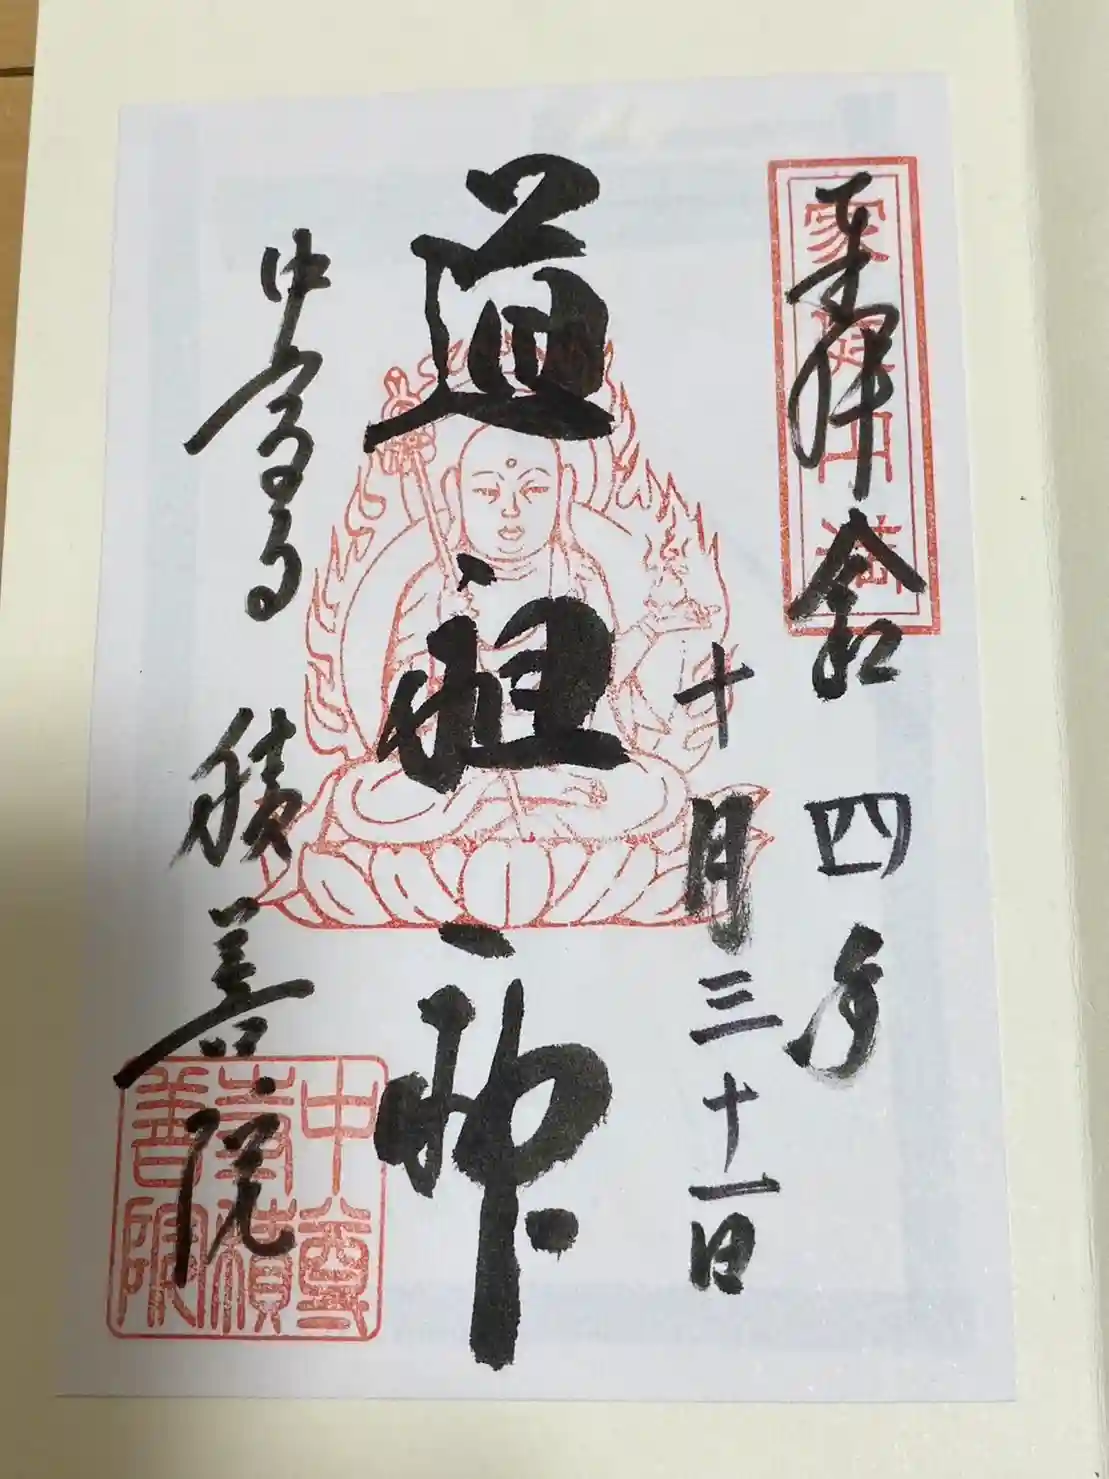 家庭円満
奉拝 令和四年
十月三十一日
道祖神
中尊寺 積善院
中尊
寺積
善院